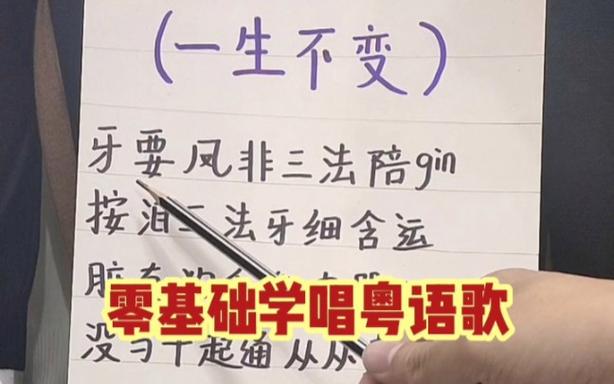 (一生不变)
牙要凤非三法陪gin
按泪三法牙细含运
脏
零基础学唱粤语歌
没匀干起通从从